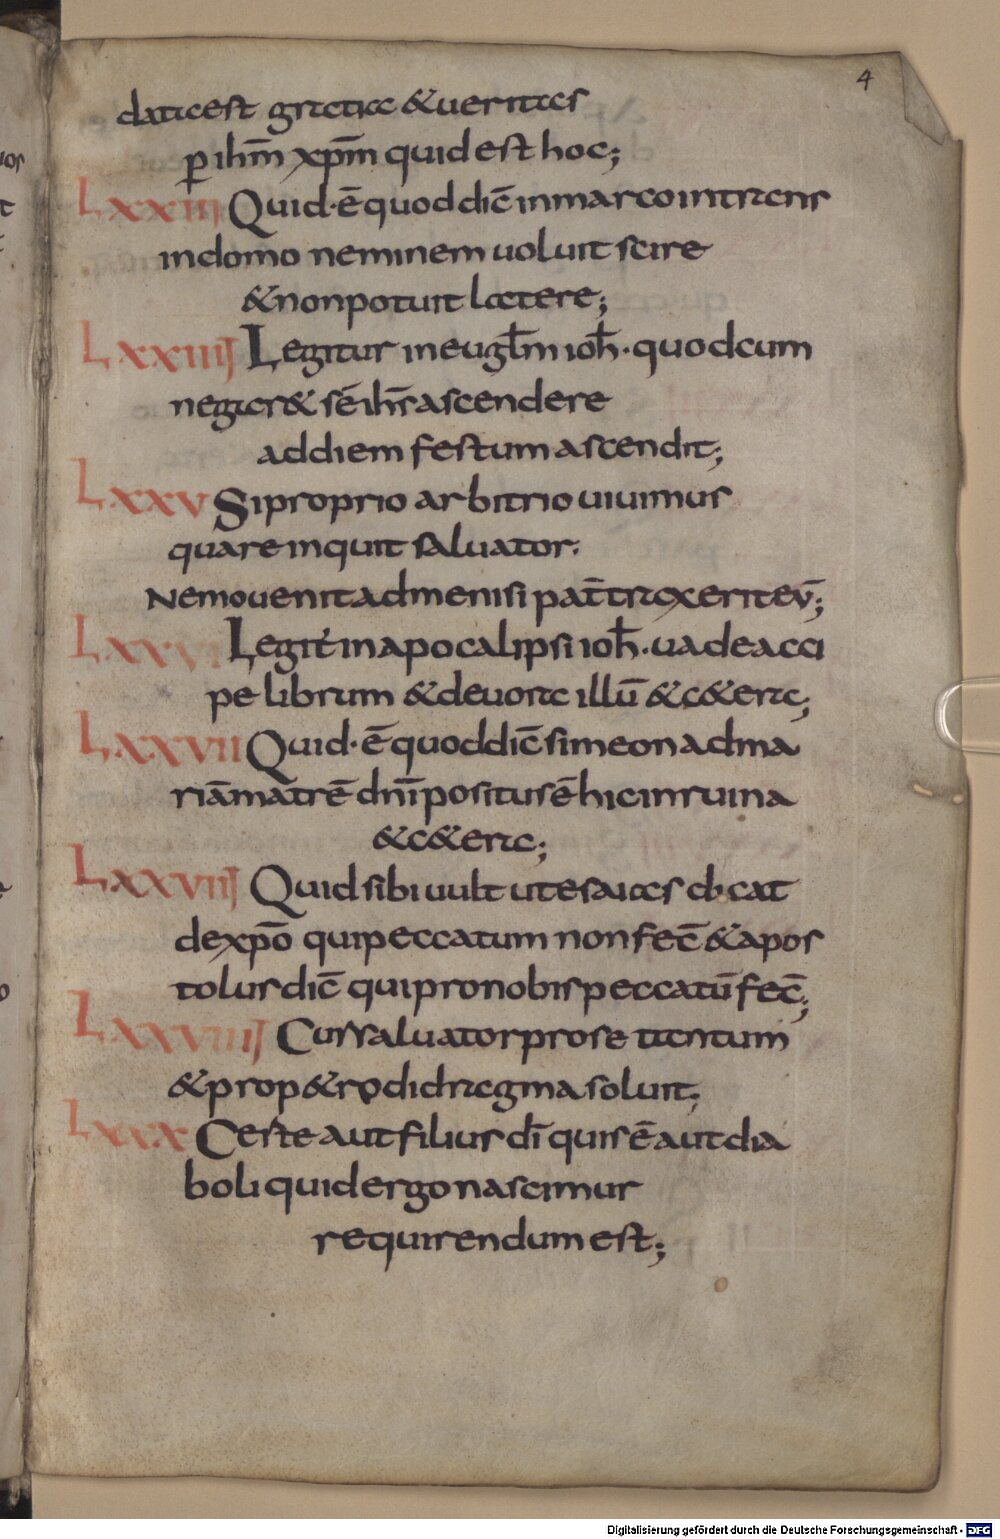 4
data est gratia & ueritas
p ihm̄ xp̄m quid est hoc;
LXXIII Quid·ē quod dic̄ in marco intrans
in domo neminem uoluit scire
& non potuit latere;
LXXIIII Legitur in eugl̄m ioh̄· quod cum
negar& sē ihs̄ ascendere
ad diem festum ascendit;
LXXV Si proprio arbitrio uiuimus
quare inquit saluator·
Nemo uenit ad me nisi pat̄ traxerit eū;
LXXVI Legit̄ in apocalipsi ioh̄· uade acci
pe librum & deuora illū & c&era;
LXXVII Quid·ē quod dic̄ simeon ad ma
riā matrē dn̄i positus ē hic in ruina
& c&era;
LXXVIII Quid sibi uult ut esaias dicat
de xp̄o qui peccatum non fec̄ & apos
tolus dic̄ qui pro nobis peccatū fec̄;
LXXVIIII Cur saluator pro se tantum
& pro p&ro didragma soluit;
LXXX Certe aut filius dī quis ē aut dia
boli quid ergo nascimur
requirendum est;
Digitalisierung gefördert durch die Deutsche Forschungsgemeinschaft - DFG